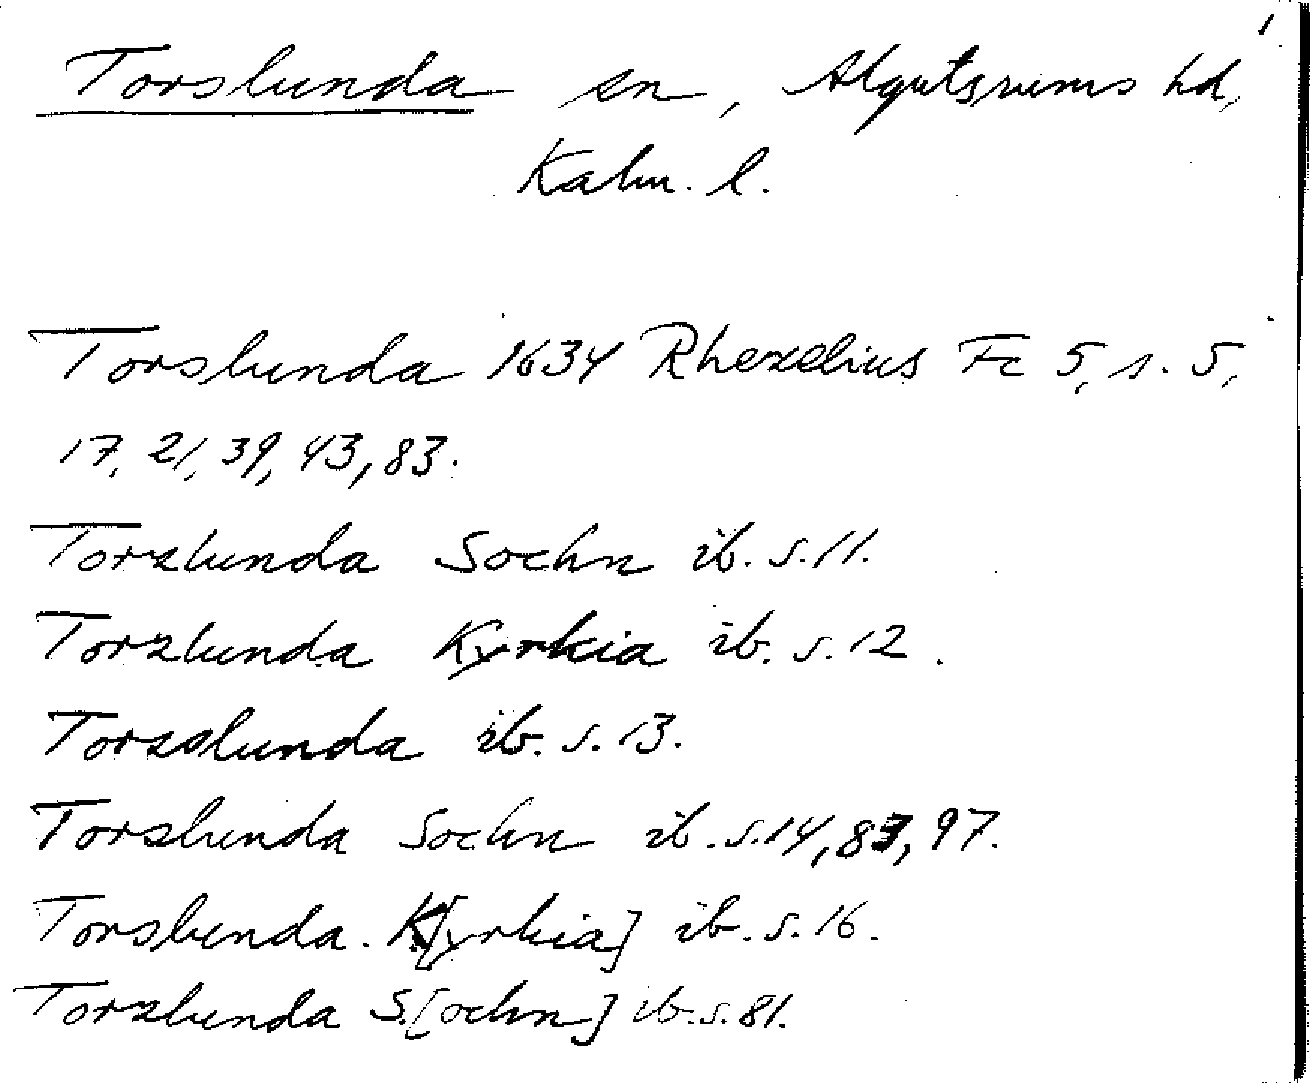 1
Torslunda sn, Algutsrums hd,
Kalm. l.
Torslunda 1634 Rhezelius Fc 5, s. 5,
17, 21, 39, 43, 83.
Torzlunda Sochn ib. s. 11.
Torzlunda Kyrkia ib. s. 12.
Torszlunda ib. s. 13.
Torslunda Sochn ib. s. 14, 83, 97.
Torslunda. K[yrkia] ib. s. 16.
Torzlunda S.[ochn] ib. s. 81.